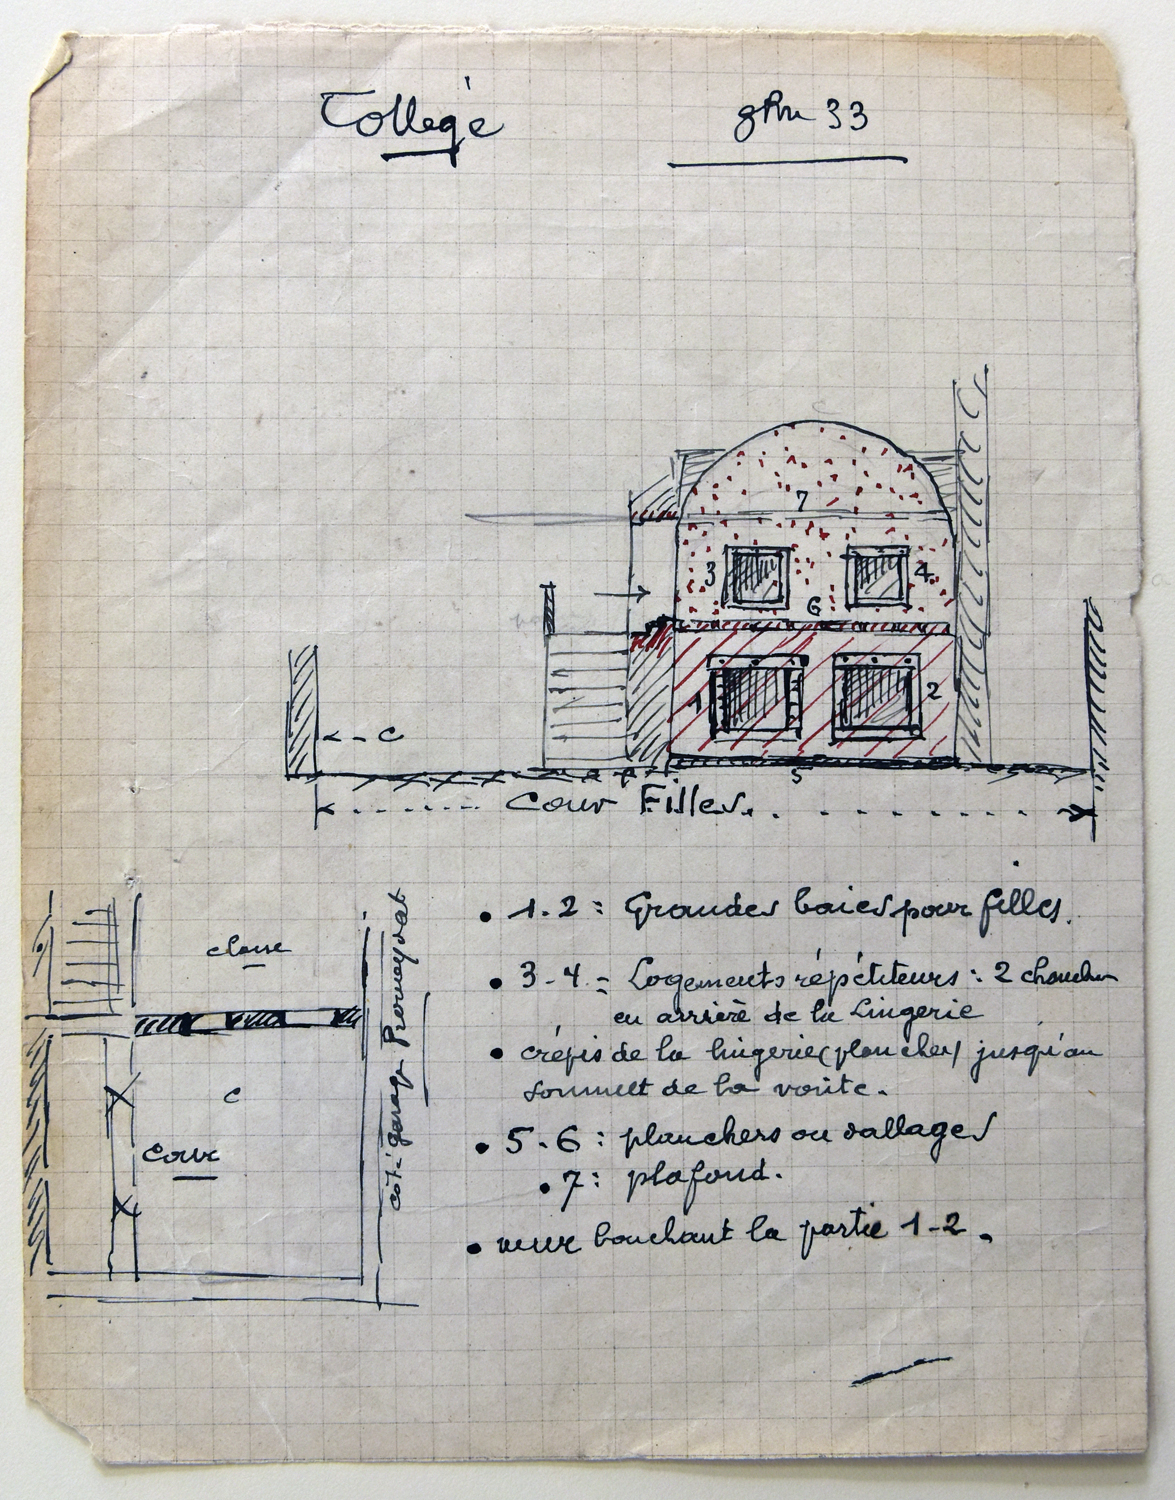 Collège
33
7
3
4
6
1
2
C
5
Cour Filles
classe
C
Cour
côté garage Promeyrat
• 1.2 : Grandes baies pour filles.
• 3-4 = Logements répétiteurs : 2 chambres
en arrière de la Lingerie
• crépis de la lingerie (plancher) jusqu'au
sommet de la voûte.
• 5.6 : planchers ou dallages
• 7 : plafond.
• mur bouchant la partie 1-2.